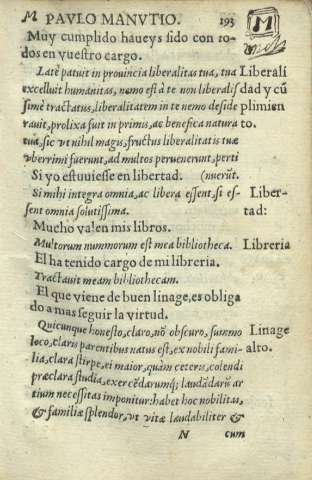 M PAVLO MANVTIO. 193
M
Muy cumplido haueys sido con to-
dos en vuestro cargo.
Latè patuit in prouincia liberalitas tua, tua Liberali
excelluit humanitas, nemo est à te non liberalis dad y cũ
simè tractatus, liberalitatem in te nemo deside plimien
rauit, prolixa fuit in primis, ac benefica natura to.
tua, sic vt nihil magis, fructus liberalitatis tuæ
vberrimi fuerunt, ad multos peruenerunt, perti
Si yo estuuiesse en libertad. (nuerũt.
Si mihi integra omnia, ac libera essent, si es- Liber-
sent omnia solutissima. tad:
Mucho valen mis libros.
Multorum nummorum est mea bibliotheca. Libreria
El ha tenido cargo de mi libreria.
Tractauit meam bibliothecam.
El que viene de buen linage, es obliga
do a mas seguir la virtud.
Quicunque honesto, claro, nõ obscuro, summo Linage
loco, claris parentibus natus est, ex nobili fami- alto.
lia, clara stirpe, ei maior, quàm ceteris, colendi
præclara studia, exercẽdarumq; laudãdarũ ar
tium necessitas imponitur: habet hoc nobilitas,
& familiæ splendor, vt vitæ laudabiliter &
N cum